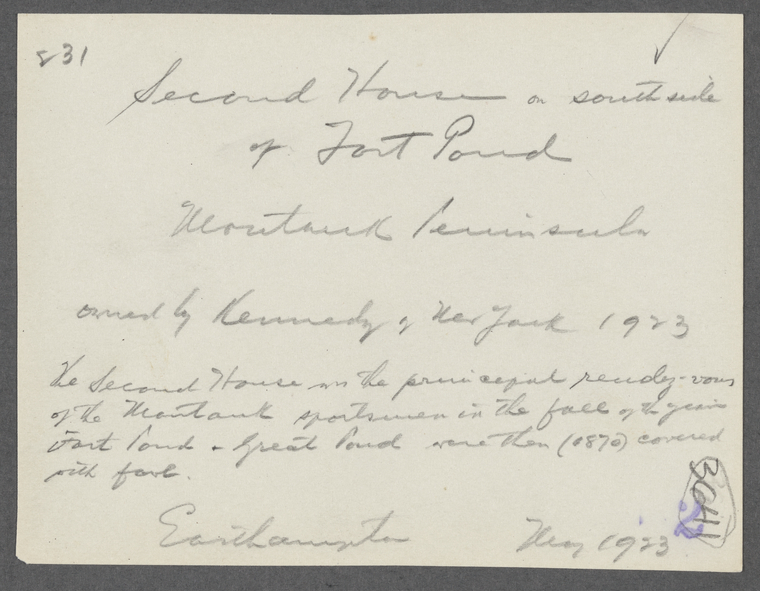 831
Second House on south side
of Fort Pond
Montauk Peninsula
owned by Kennedy of New York 1923
The Second House was the principal rendez-vous
of the Montauk sportsmen in the fall of the year
Fort Pond + Great Pond were then (1870) covered
with fowl.
Easthampton May 1923